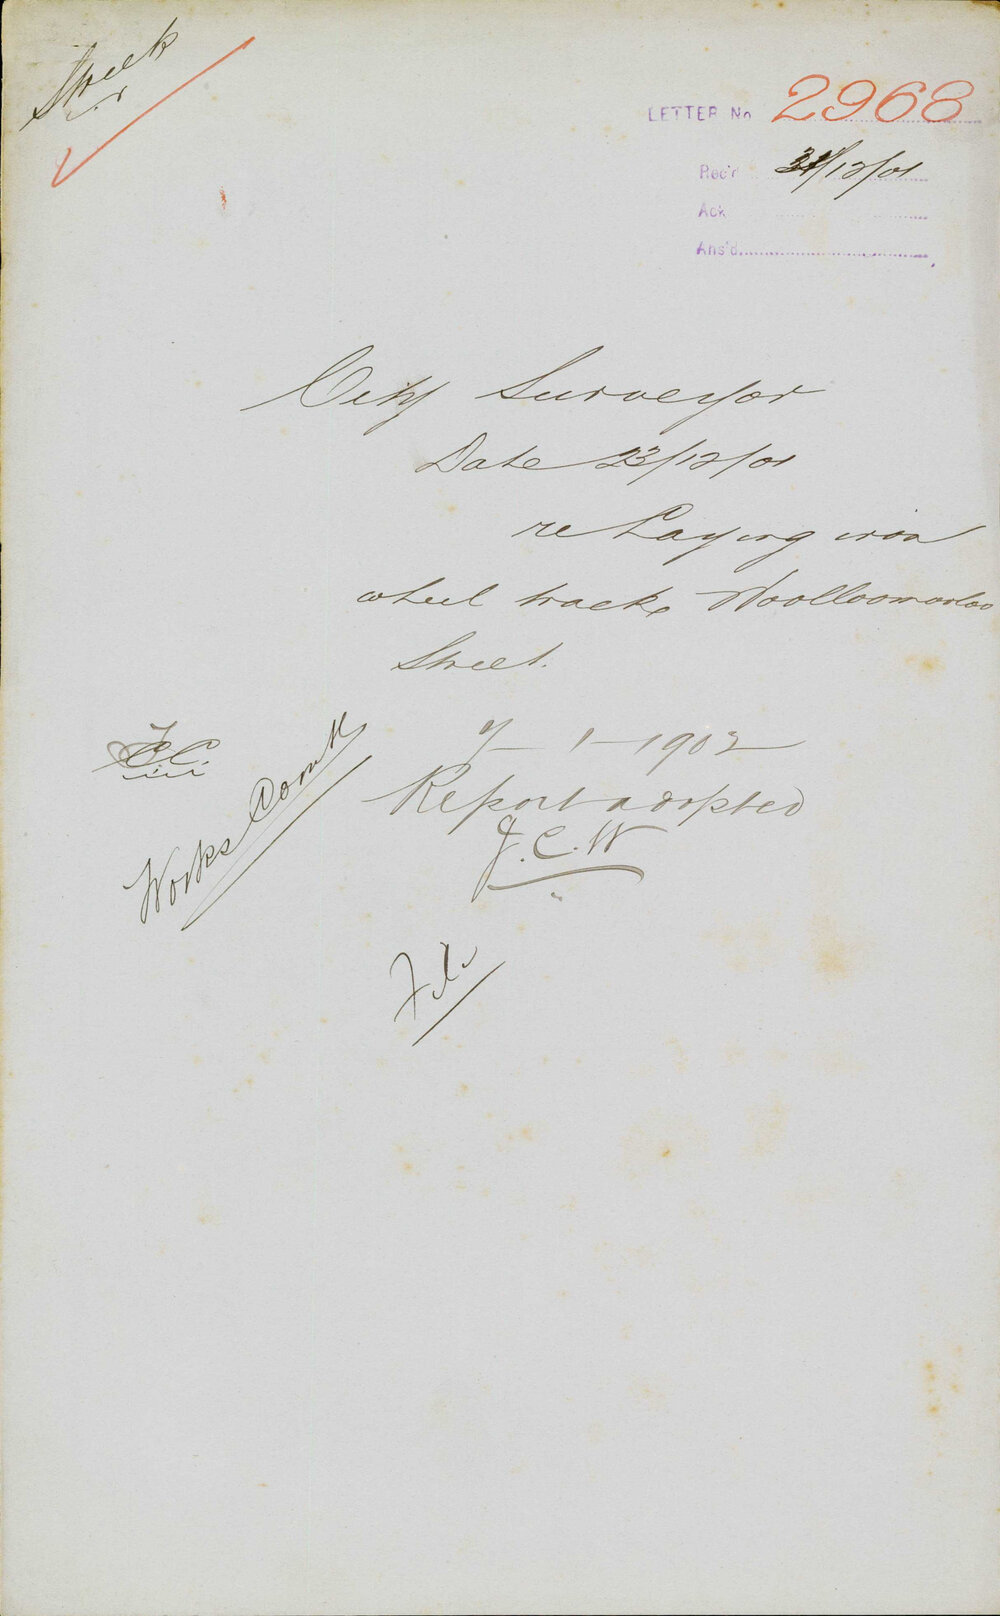 Street
LETTER No 2968
Rec'd 31/12/01
Ack
Ans'd
City Surveyor
Date 23/12/01
re Laying iron
wheel tracks Woolloomooloo
Street.
7-1-1902
Report adopted
J.C.W
Works Comtt
File